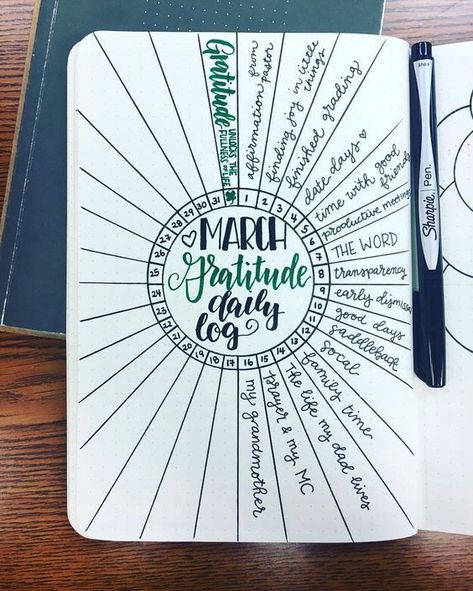 Gratitude
UNLOCKS THE
FULLNESS OF LIFE
affirmation from
pastor
finding joy in little
things
finished grading
date days ♥
time with good
friends
productive meetings
THE WORD
transparency
early dismissal
good days
saddleback
socal
family time
The life my dad lives
prayer & my MC
my grandmother
1
2
3
4
5
6
7
8
9
10
11
12
13
14
15
16
17
18
19
20
21
22
23
24
25
26
27
28
29
30
31
MARCH
Gratitude
daily
log
Sharpie Pen.